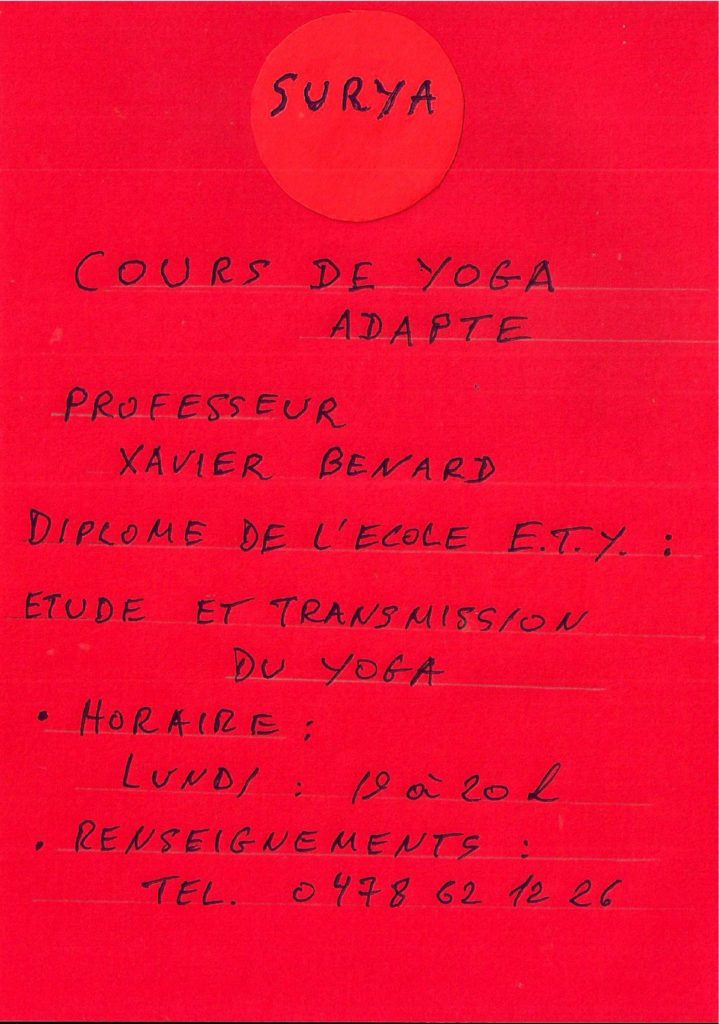 SURYA
COURS DE YOGA
ADAPTE
PROFESSEUR
XAVIER BENARD
DIPLOME DE L'ECOLE E.T.Y. :
ETUDE ET TRANSMISSION
DU YOGA
• HORAIRE :
LUNDI : 19 à 20 h
• RENSEIGNEMENTS :
TEL. 0478 62 12 26